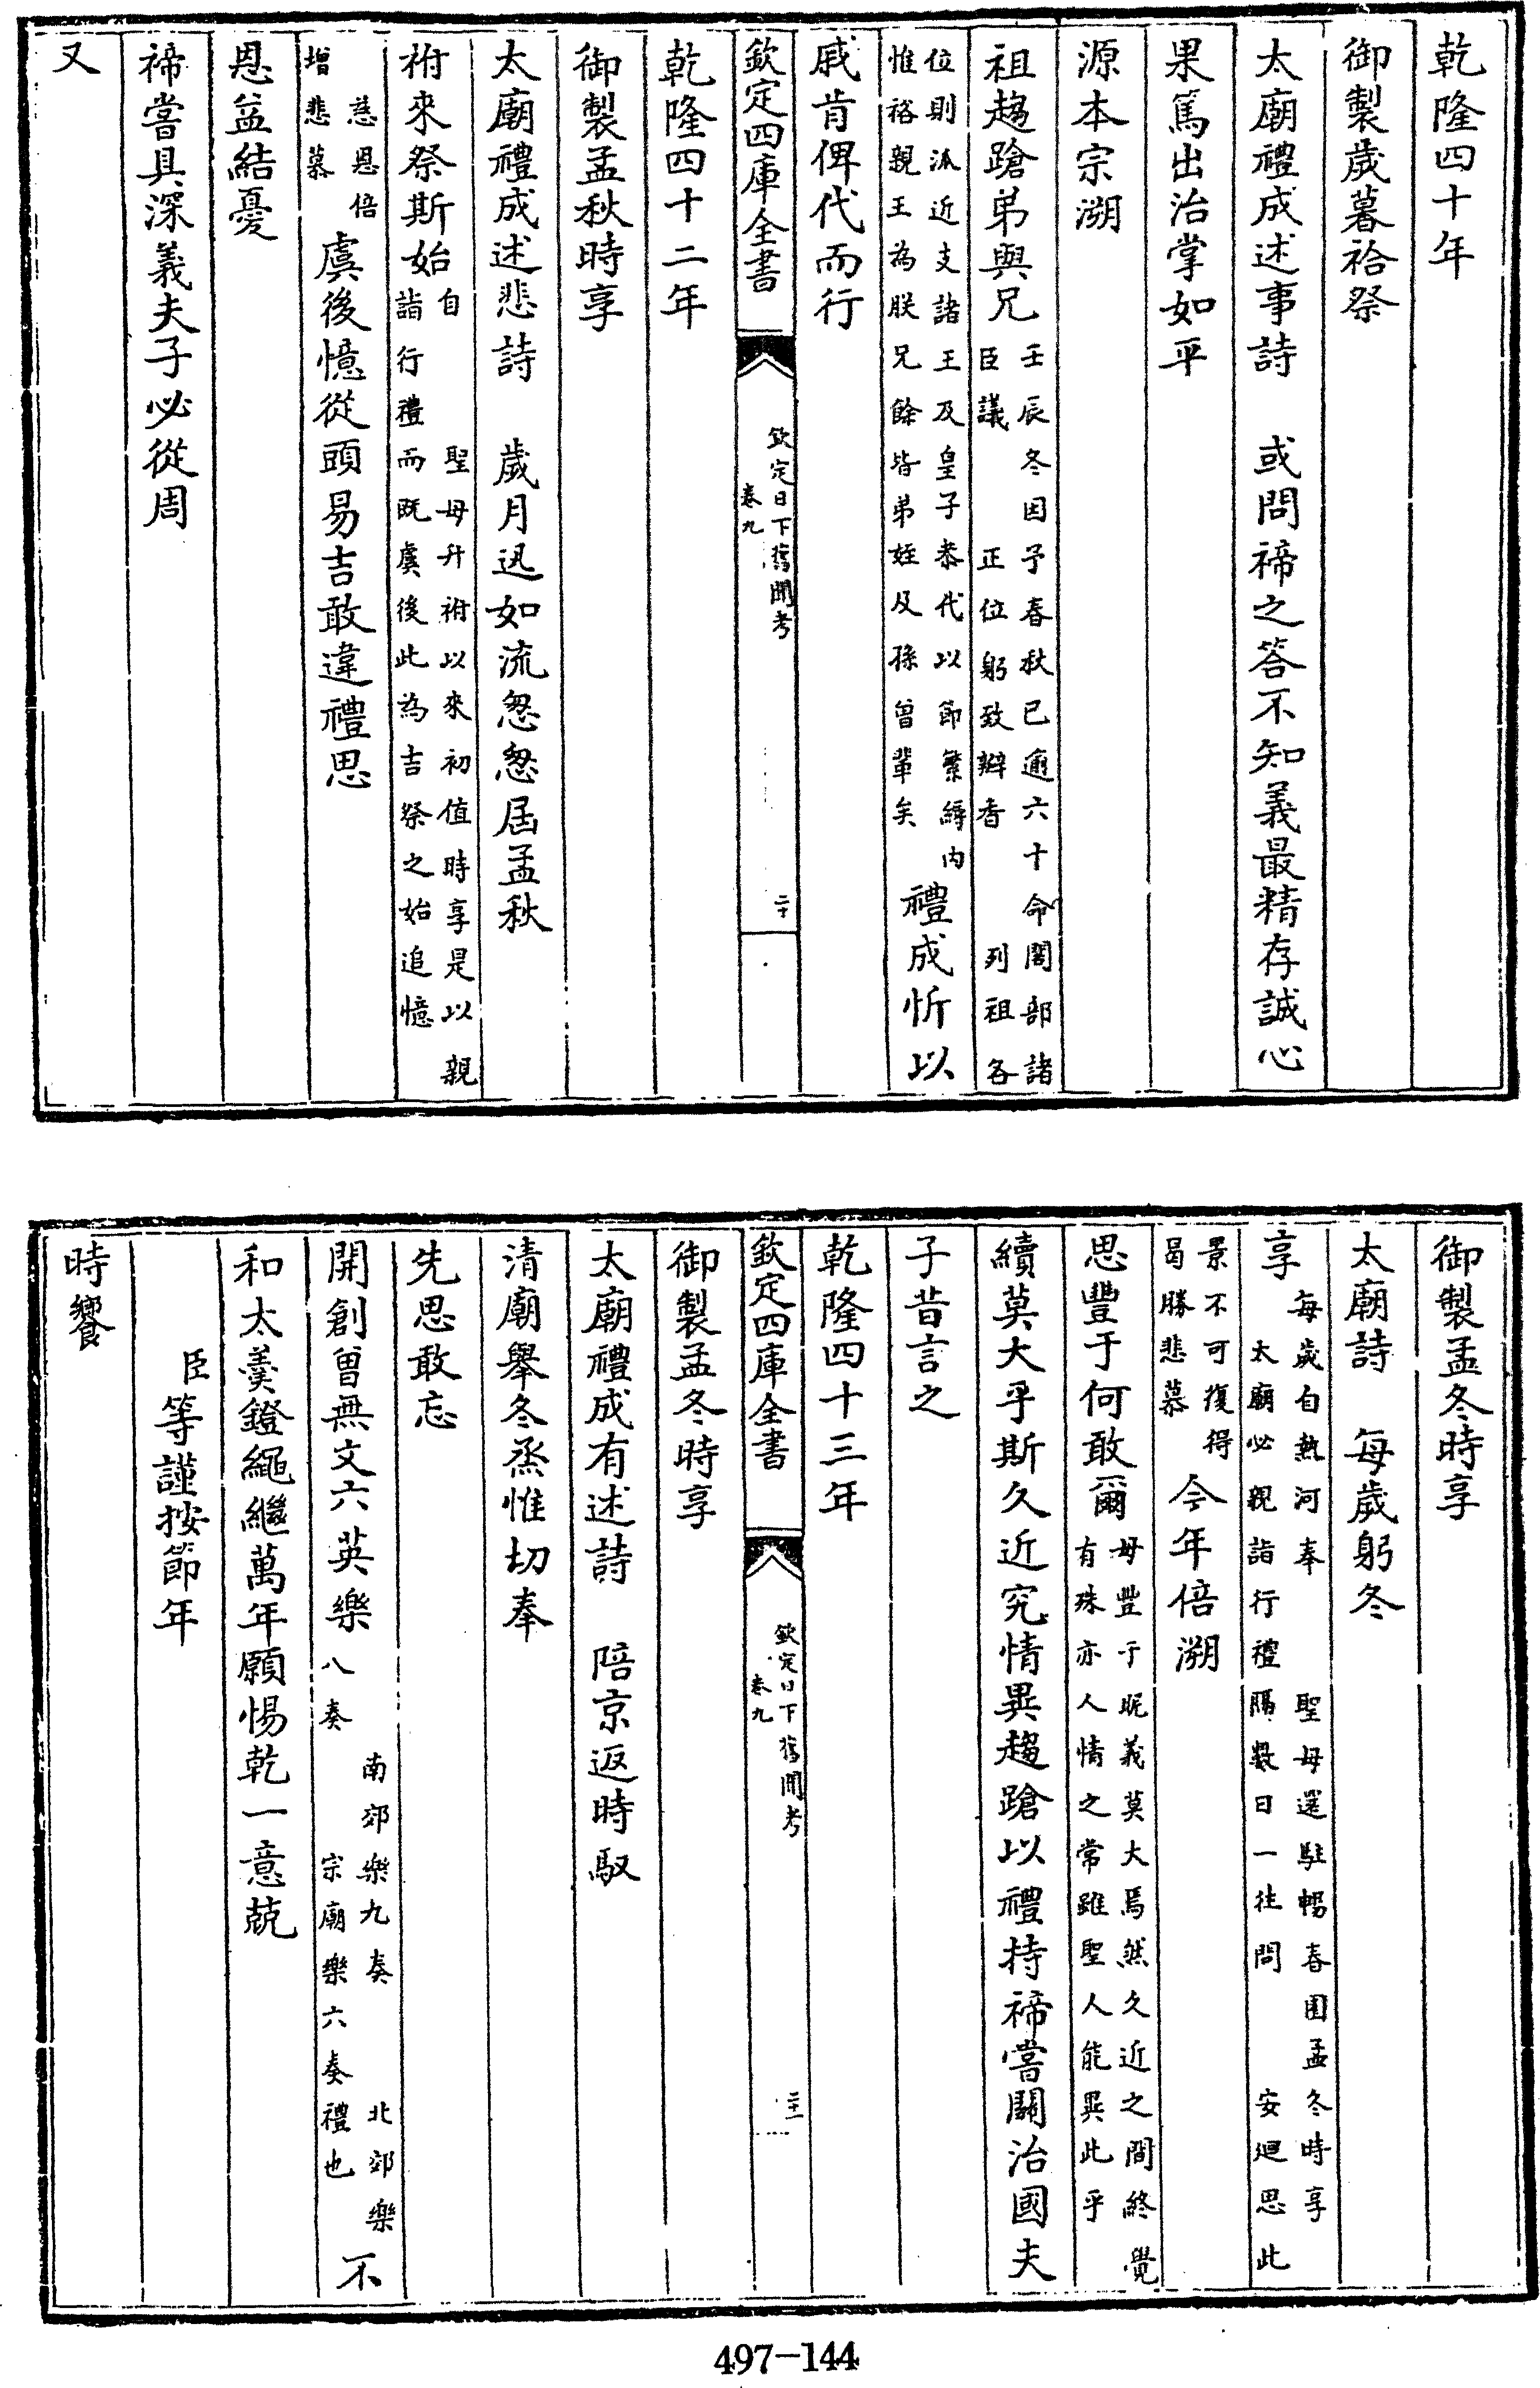 乾隆四十年
御製歲暮祫祭
太廟禮成述事詩　或問禘之答不知義最精存誠心
果篤出治掌如平
源本宗溯
祖趨蹌弟與兄壬辰冬因予春秋已逾六十命閣部諸
臣議　正位躬致瓣香　列祖各
位則派近支諸王及皇子恭代以節繁縟內
惟裕親王為朕兄餘皆弟姪及孫曾輩矣禮成忻以
戚肯俾代而行
欽定四庫全書
欽定日下舊聞考
卷九
二十
乾隆四十二年
御製孟秋時享
太廟禮成述悲詩　歲月迅如流怱怱屆孟秋
祔來祭斯始自　聖母升祔以來初值時享是以親
詣行禮而既虞後此為吉祭之始追憶
慈恩倍
增悲慕虞後憶從頭易吉敢違禮思
恩益結憂
禘嘗具深義夫子必從周
又
御製孟冬時享
太廟詩　每歲躬冬
享每歲自熱河奉　聖母還駐暢春園孟冬時享
太廟必親詣行禮隔數日一往問　安迴思此
景不可復得
曷勝悲慕今年倍溯
思豐于何敢爾毋豐于昵義莫大焉然久近之間終覺
有殊亦人情之常雖聖人能異此乎
續莫大乎斯久近究情異趨蹌以禮持禘嘗關治國夫
子昔言之
乾隆四十三年
欽定四庫全書
欽定日下舊聞考
卷九
二十一
御製孟冬時享
太廟禮成有述詩　陪京返時馭
清廟舉冬烝惟切奉
先思敢忘
開創曾無文六英樂南郊樂九奏　北郊樂
八奏　宗廟樂六奏禮也不
和太羹鐙繩繼萬年願惕乾一意兢
臣等謹按節年
時饗
497-144